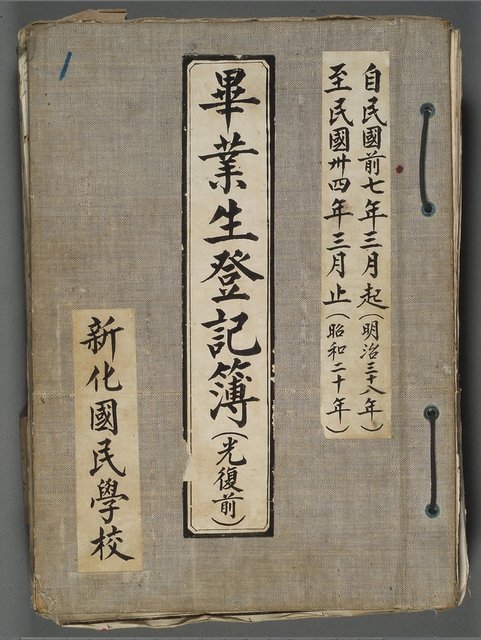 自民國前七年三月起(明治三十八年)
至民國卅四年三月止(昭和二十年)
畢業生登記簿(光復前)
新化國民學校
1